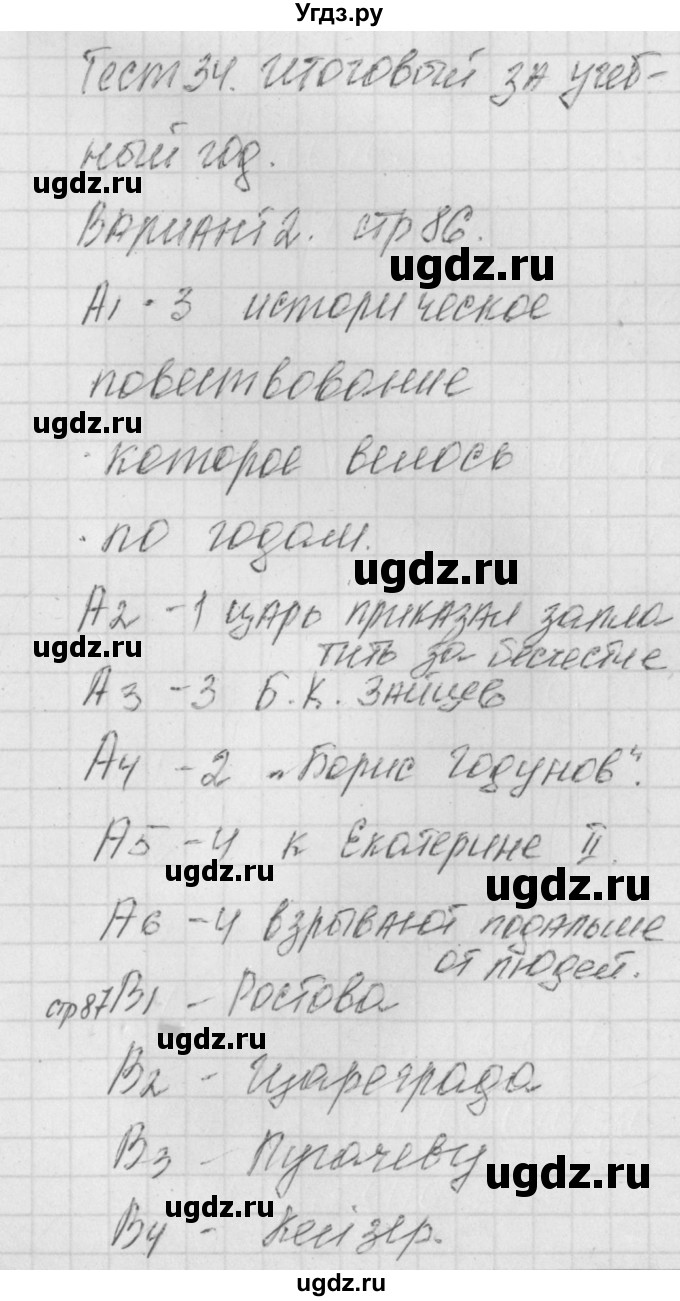 Угдз.ру
Тест 34. Итоговый за учеб-
ный год.
ugdz.ru
Вариант 2. стр 86.
ugdz.ru
А1 · 3 историческое
повествование
ugdz.ru
которое велось
по годам.
ugdz.ru
А2 - 1 царь приказал запла
ugdz.ru
тить за бесчестие
А3 - 3 Б. К. Зайцев
А4 - 2 „Борис Годунов“.
А5 - 4 к Екатерине II.
ugdz.ru
ugdz.ru
А6 - 4 взрывают подальше
от людей.
стр 87 В1 - Ростова
ugdz.ru
В2 - Щареграда
В3 - Пугачеву
ugdz.ru
ugdz.ru
В4 - Кейзер.
ugdz.ru